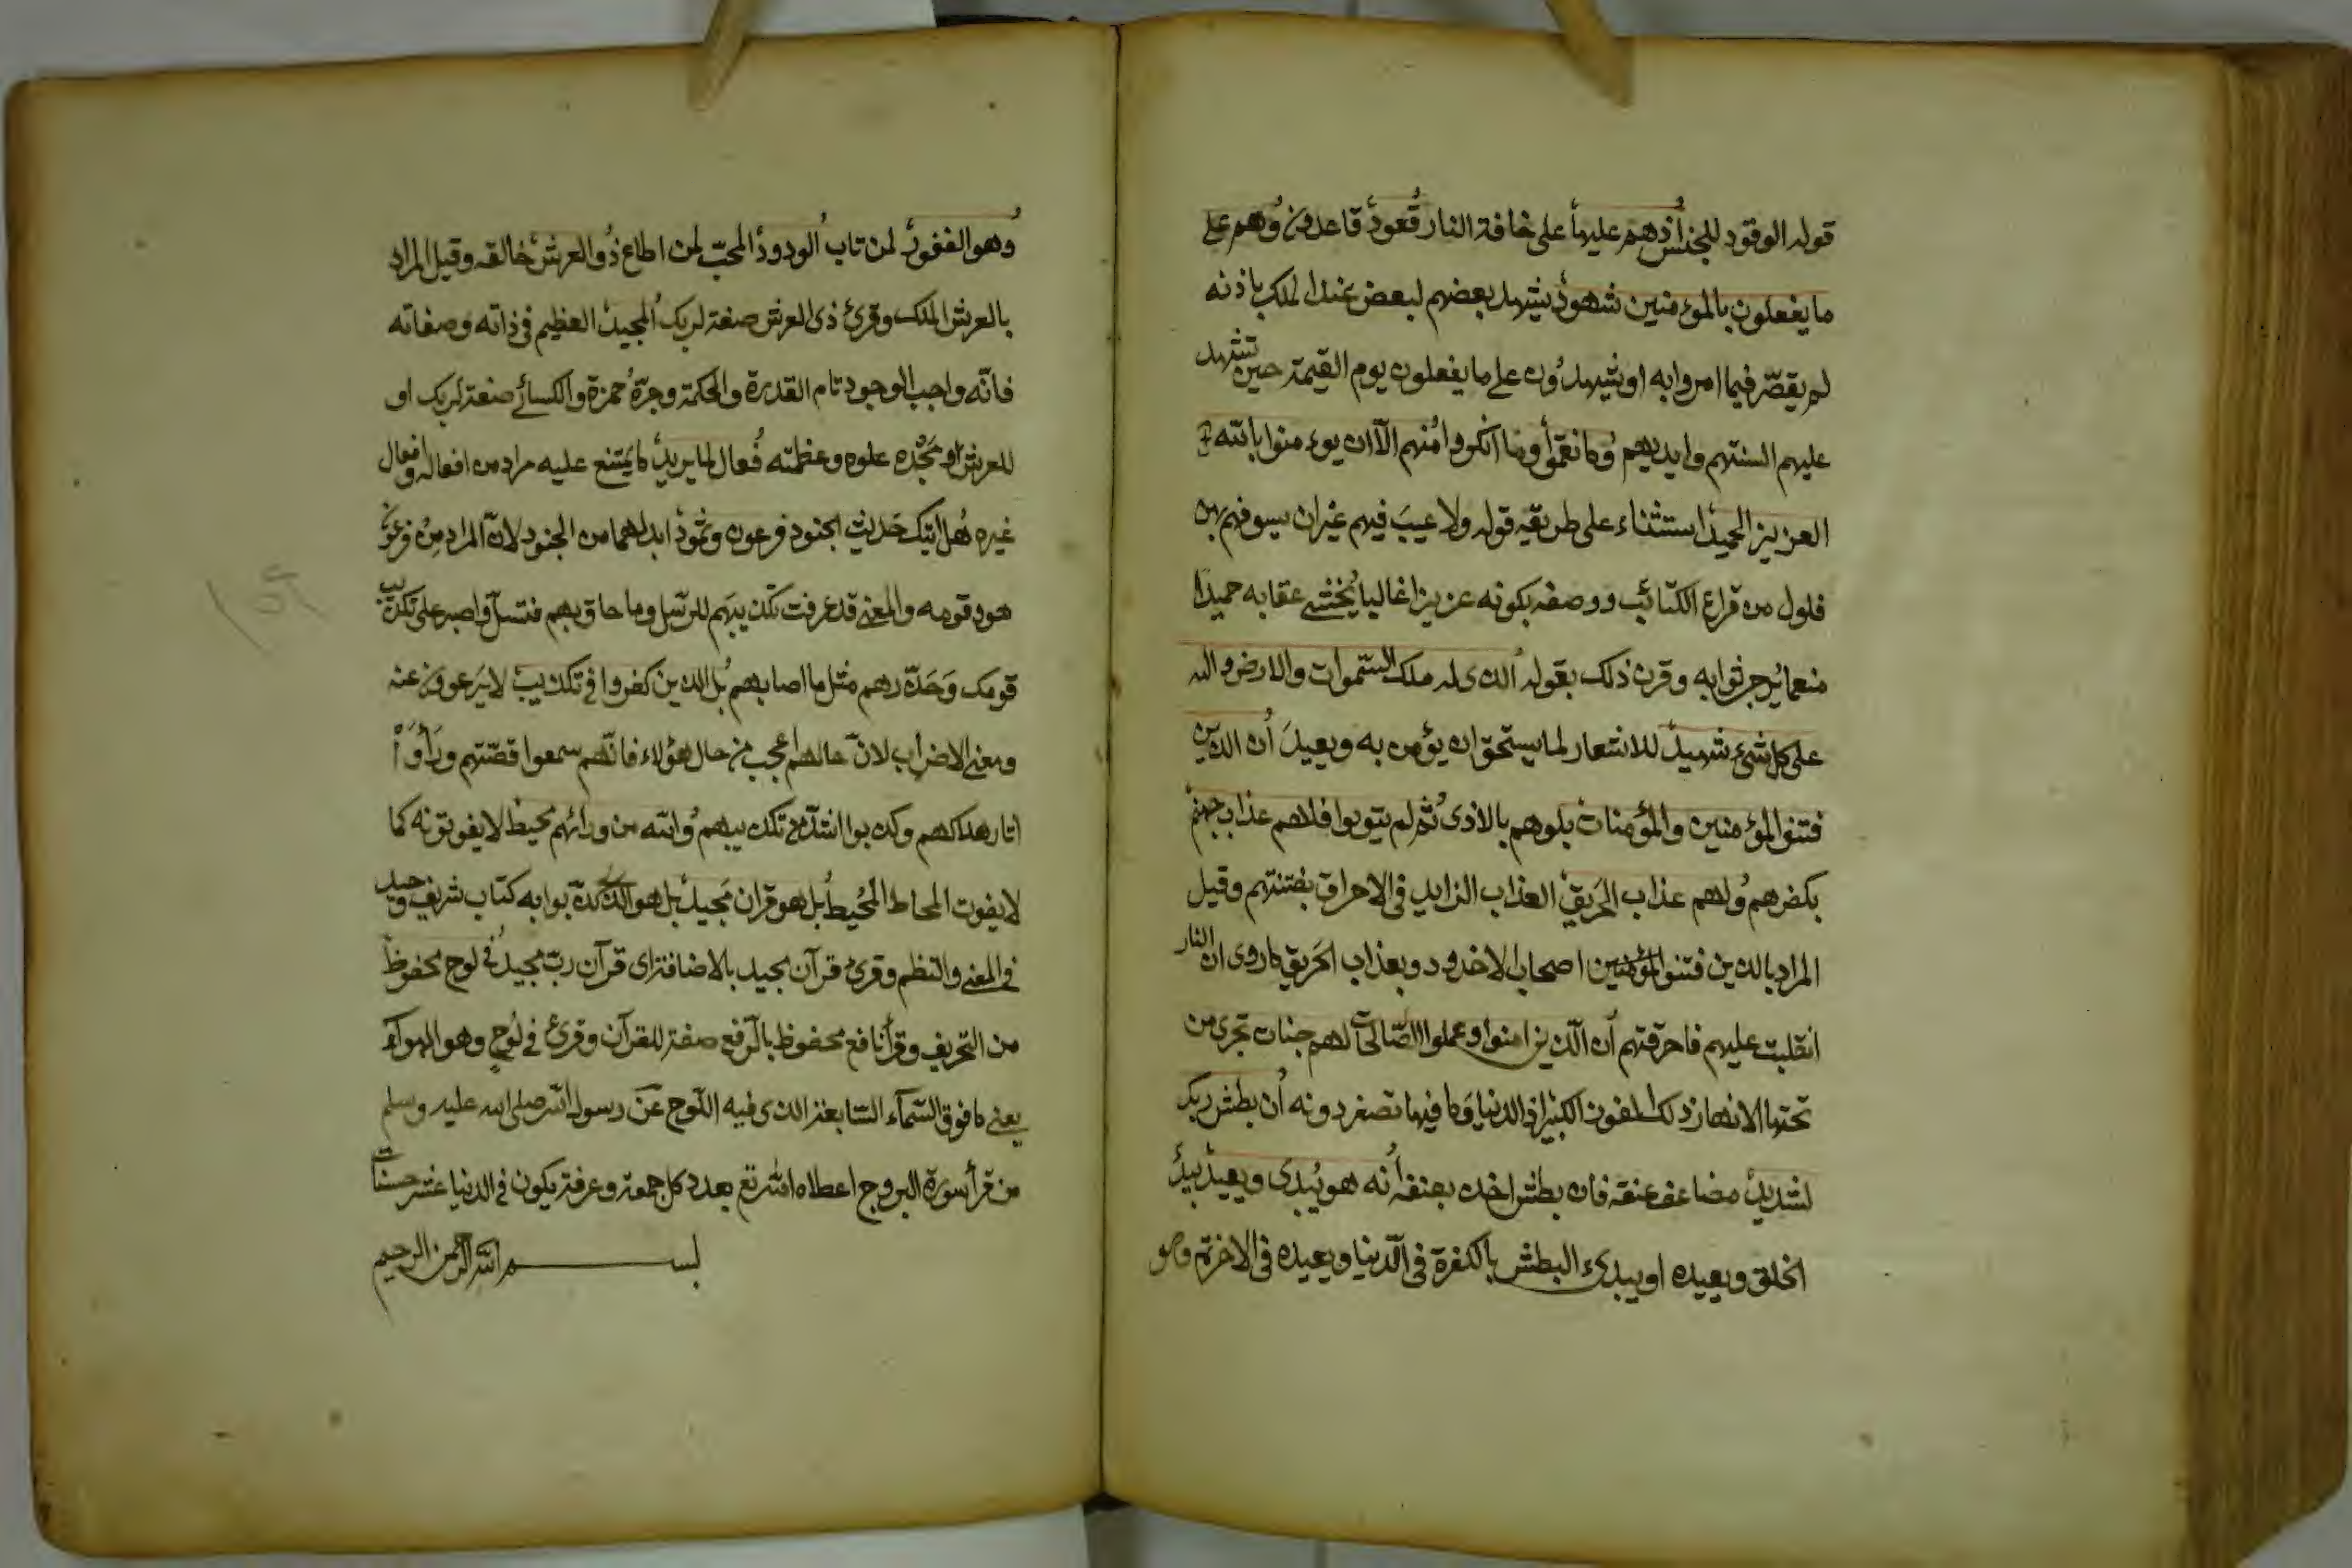 قوله الوقود للجنس اذهم عليها على حافة النار قعود قاعدون وهم على
ما يفعلون بالمؤمنين شهود يشهد بعضهم لبعض عند الملك بانه
لم يقصر فيما امروا به او يشهدون على ما يفعلون يوم القيمة حين تشهد
عليهم السنتهم وايديهم وما نقموا وما انكروا منهم الا ان يؤمنوا بالله
العزيز الحميد استثناء على طريقه قوله ولا عيب فيهم غير ان سيوفهم بهن
فلول من قراع الكتائب ووصفه بكونه عزيزا غالبا يخشى عقابه حميدا
منعما يرجى ثوابه وقرن ذلك بقوله الذى له ملك السموات والارض والله
على كل شئ شهيد للاشعار لما يستحق ان يؤمن به ويعبد ان الذين
فتنوا المؤمنين والمؤمنات بلوهم بالاذى ثم لم يتوبوا فلاهم عذاب جهنم
بكفرهم ولهم عذاب الحريق العذاب الزايد فى الاحراق بفتنتهم وقيل
المراد بالذين فتنوا المؤمنين اصحاب الاخدود وبعذاب الحريق ما روى ان النار
انقلبت عليهم فاحرقتهم ان الذين امنوا وعملوا الصالحات لهم جنات تجرى من
تحتها الانهار ذلك الفوز الكبير اذ الدنيا وما فيها تصغر دونه ان بطش ربك
لشديد مضاعف عنفه فان بطش اخذ بعنف انه هو يبدئ ويعيد يبدئ
الخلق ويعيده او يبدئ البطش بالكفرة فى الدنيا ويعيده فى الاخرة وهو
وهو الغفور لمن تاب الودود المحب لمن اطاع ذو العرش خالقه وقيل المراد
بالعرش الملك وقرئ ذى العرش صفة لربك المجيد العظيم فى ذاته وصفاته
فانه واجب الوجود تام القدرة والحكمة وجره حمزة والكسائى صفة لربك او
للعرش ومجده علوه وعظمته فعال لما يريد لا يمتنع عليه مراد من افعاله وافعال
غيره هل اتيك حديث الجنود فرعون وثمود ابدلهما من الجنود لان المراد من فرعون
هو وقومه والمعنى قد عرفت تكذيبهم للرسل وما حاق بهم فتسل واصبر على تكذيب
قومك وحذرهم مثل ما اصابهم بل الذين كفروا فى تكذيب لا يرعوون عنه
ومعنى الاضراب لان حالهم اعجب من حال هؤلاء فانهم سمعوا قصتهم وراوا
اثار هلاكهم وكذبوا اشد من تكذيبهم والله من ورائهم محيط لا يفوتونه كما
لا يفوت المحاط المحيط بل هو قران مجيد بل هو الذى كذبوا به كتاب شريف وحيد
فى المعنى والنظم وقرئ قرآن مجيد بالاضافة اى قرآن رب مجيد فى لوح محفوظ
من التحريف وقرأ نافع محفوظ بالرفع صفة للقرآن وقرئ فى لوح وهو الهواء
يعنى ما فوق السماء السابعة الذى فيه اللوح عن رسول الله صلى الله عليه وسلم
من قرأ سورة البروج اعطاه الله تع بعدد كل جمعة وعرفة يكون فى الدنيا عشر حسنات
بسم الله الرحمن الرحيم